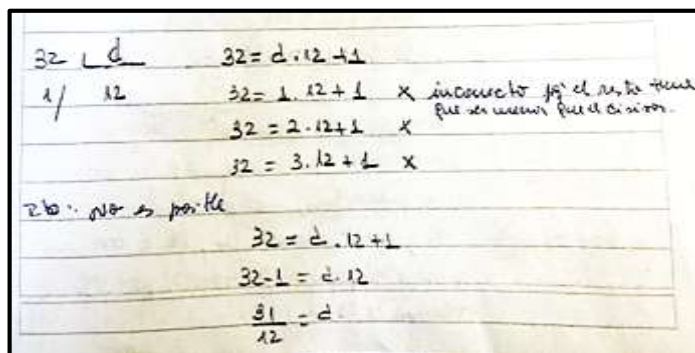 32 | d 32 = d . 12 + 1
1/ 12 32 = 1 . 12 + 1 x incorrecto pq' el resto tiene
que ser menor que el divisor.
32 = 2 . 12 + 1 x
32 = 3 . 12 + 1 x
No es posible
32 = d . 12 + 1
32 - 1 = d . 12
31/12 = d